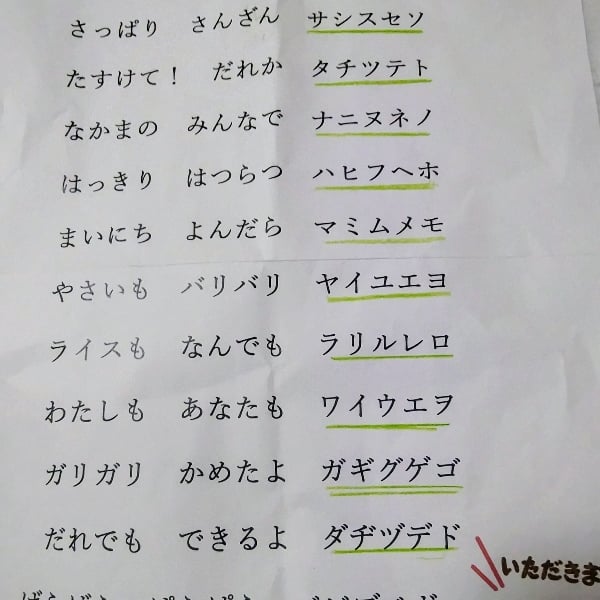 さっぱり さんざん サシスセソ
たすけて! だれか タチツテト
なかまの みんなで ナニヌネノ
はっきり はつらつ ハヒフヘホ
まいにち よんだら マミムメモ
やさいも バリバリ ヤイユエヨ
ライスも なんでも ラリルレロ
わたしも あなたも ワイウエヲ
ガリガリ かめたよ ガギグゲゴ
だれでも できるよ ダヂヅデド
いただきま